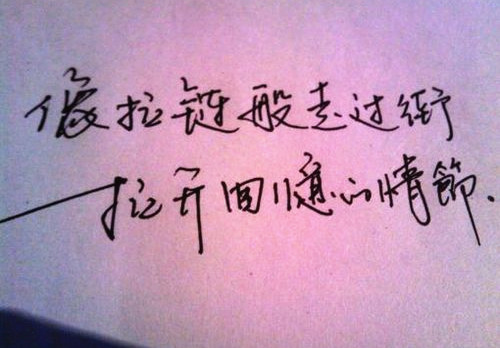 像拉链般走过街
拉开回憶的情節.